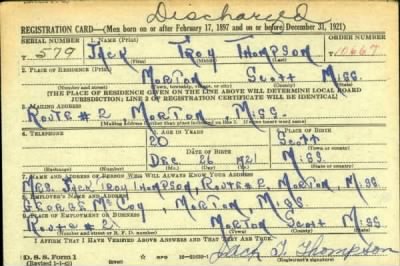 Discharged
REGISTRATION CARD—(Men born on or after February 17, 1897 and on or before December 31, 1921)
SERIAL NUMBER 1. NAME (Print) ORDER NUMBER
T 579 JACK TROY THOMPSON 10667
(First) (Middle) (Last)
2. PLACE OF RESIDENCE (Print)
MORTON SCOTT MISS.
(Number and street) (Town, township, village, or city) (County) (State)
[THE PLACE OF RESIDENCE GIVEN ON THE LINE ABOVE WILL DETERMINE LOCAL BOARD
JURISDICTION; LINE 2 OF REGISTRATION CERTIFICATE WILL BE IDENTICAL]
3. MAILING ADDRESS
ROUTE # 2 MORTON MISS.
[Mailing address if other than place indicated on line 2. If same insert word same]
4. TELEPHONE 5. AGE IN YEARS PLACE OF BIRTH
20 SCOTT
DATE OF BIRTH (Town or county)
DEC 26 1921 MISS.
(State or country)
7. NAME AND ADDRESS OF PERSON WHO WILL ALWAYS KNOW YOUR ADDRESS
MRS. JACK TROY THOMPSON, ROUTE # 2, MORTON, MISS.
EMPLOYER'S NAME AND ADDRESS
GEORGE MCCOY MORTON MISS
9. PLACE OF EMPLOYMENT OR BUSINESS
ROUTE # 2 MORTON SCOTT MISS
(Number and street or R. F. D. number) (Town) (County) (State)
I AFFIRM THAT I HAVE VERIFIED ABOVE ANSWERS AND THAT THEY ARE TRUE.
D. S. S. Form 1
(Revised 1-1-42)
Jack T. Thompson